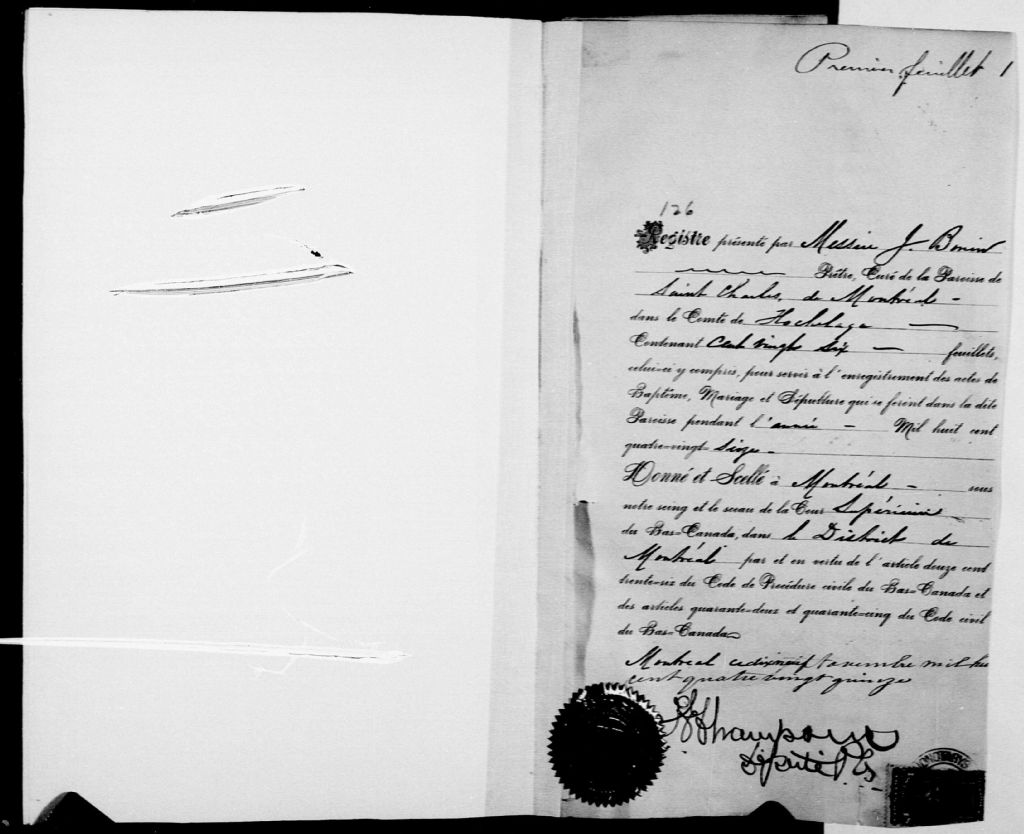 Premier feuillet 1
126
Registre présenté par Messire J. Bonin
Prêtre, Curé de la Paroisse de
Saint Charles, de Montréal -
dans le Comté de Hochelaga
Contenant Cent vingt six - feuillets,
celui-ci y compris, pour servir à l'enregistrement des actes de
Baptême, Mariage et Sépulture qui se feront dans la dite
Paroisse pendant l'année - Mil huit cent
quatre-vingt seize -
Donné et Scellé à Montréal - sous
notre seing et le sceau de la Cour Supérieure
du Bas-Canada, dans le District de
Montréal par et en vertu de l'article douze cent
trente-six du Code de Procédure civile du Bas-Canada et
des articles quarante-deux et quarante-cinq du Code civil
du Bas-Canada
Montreal ce dixneuf novembre mil hui
cent quatre vingt quinze
Député P.